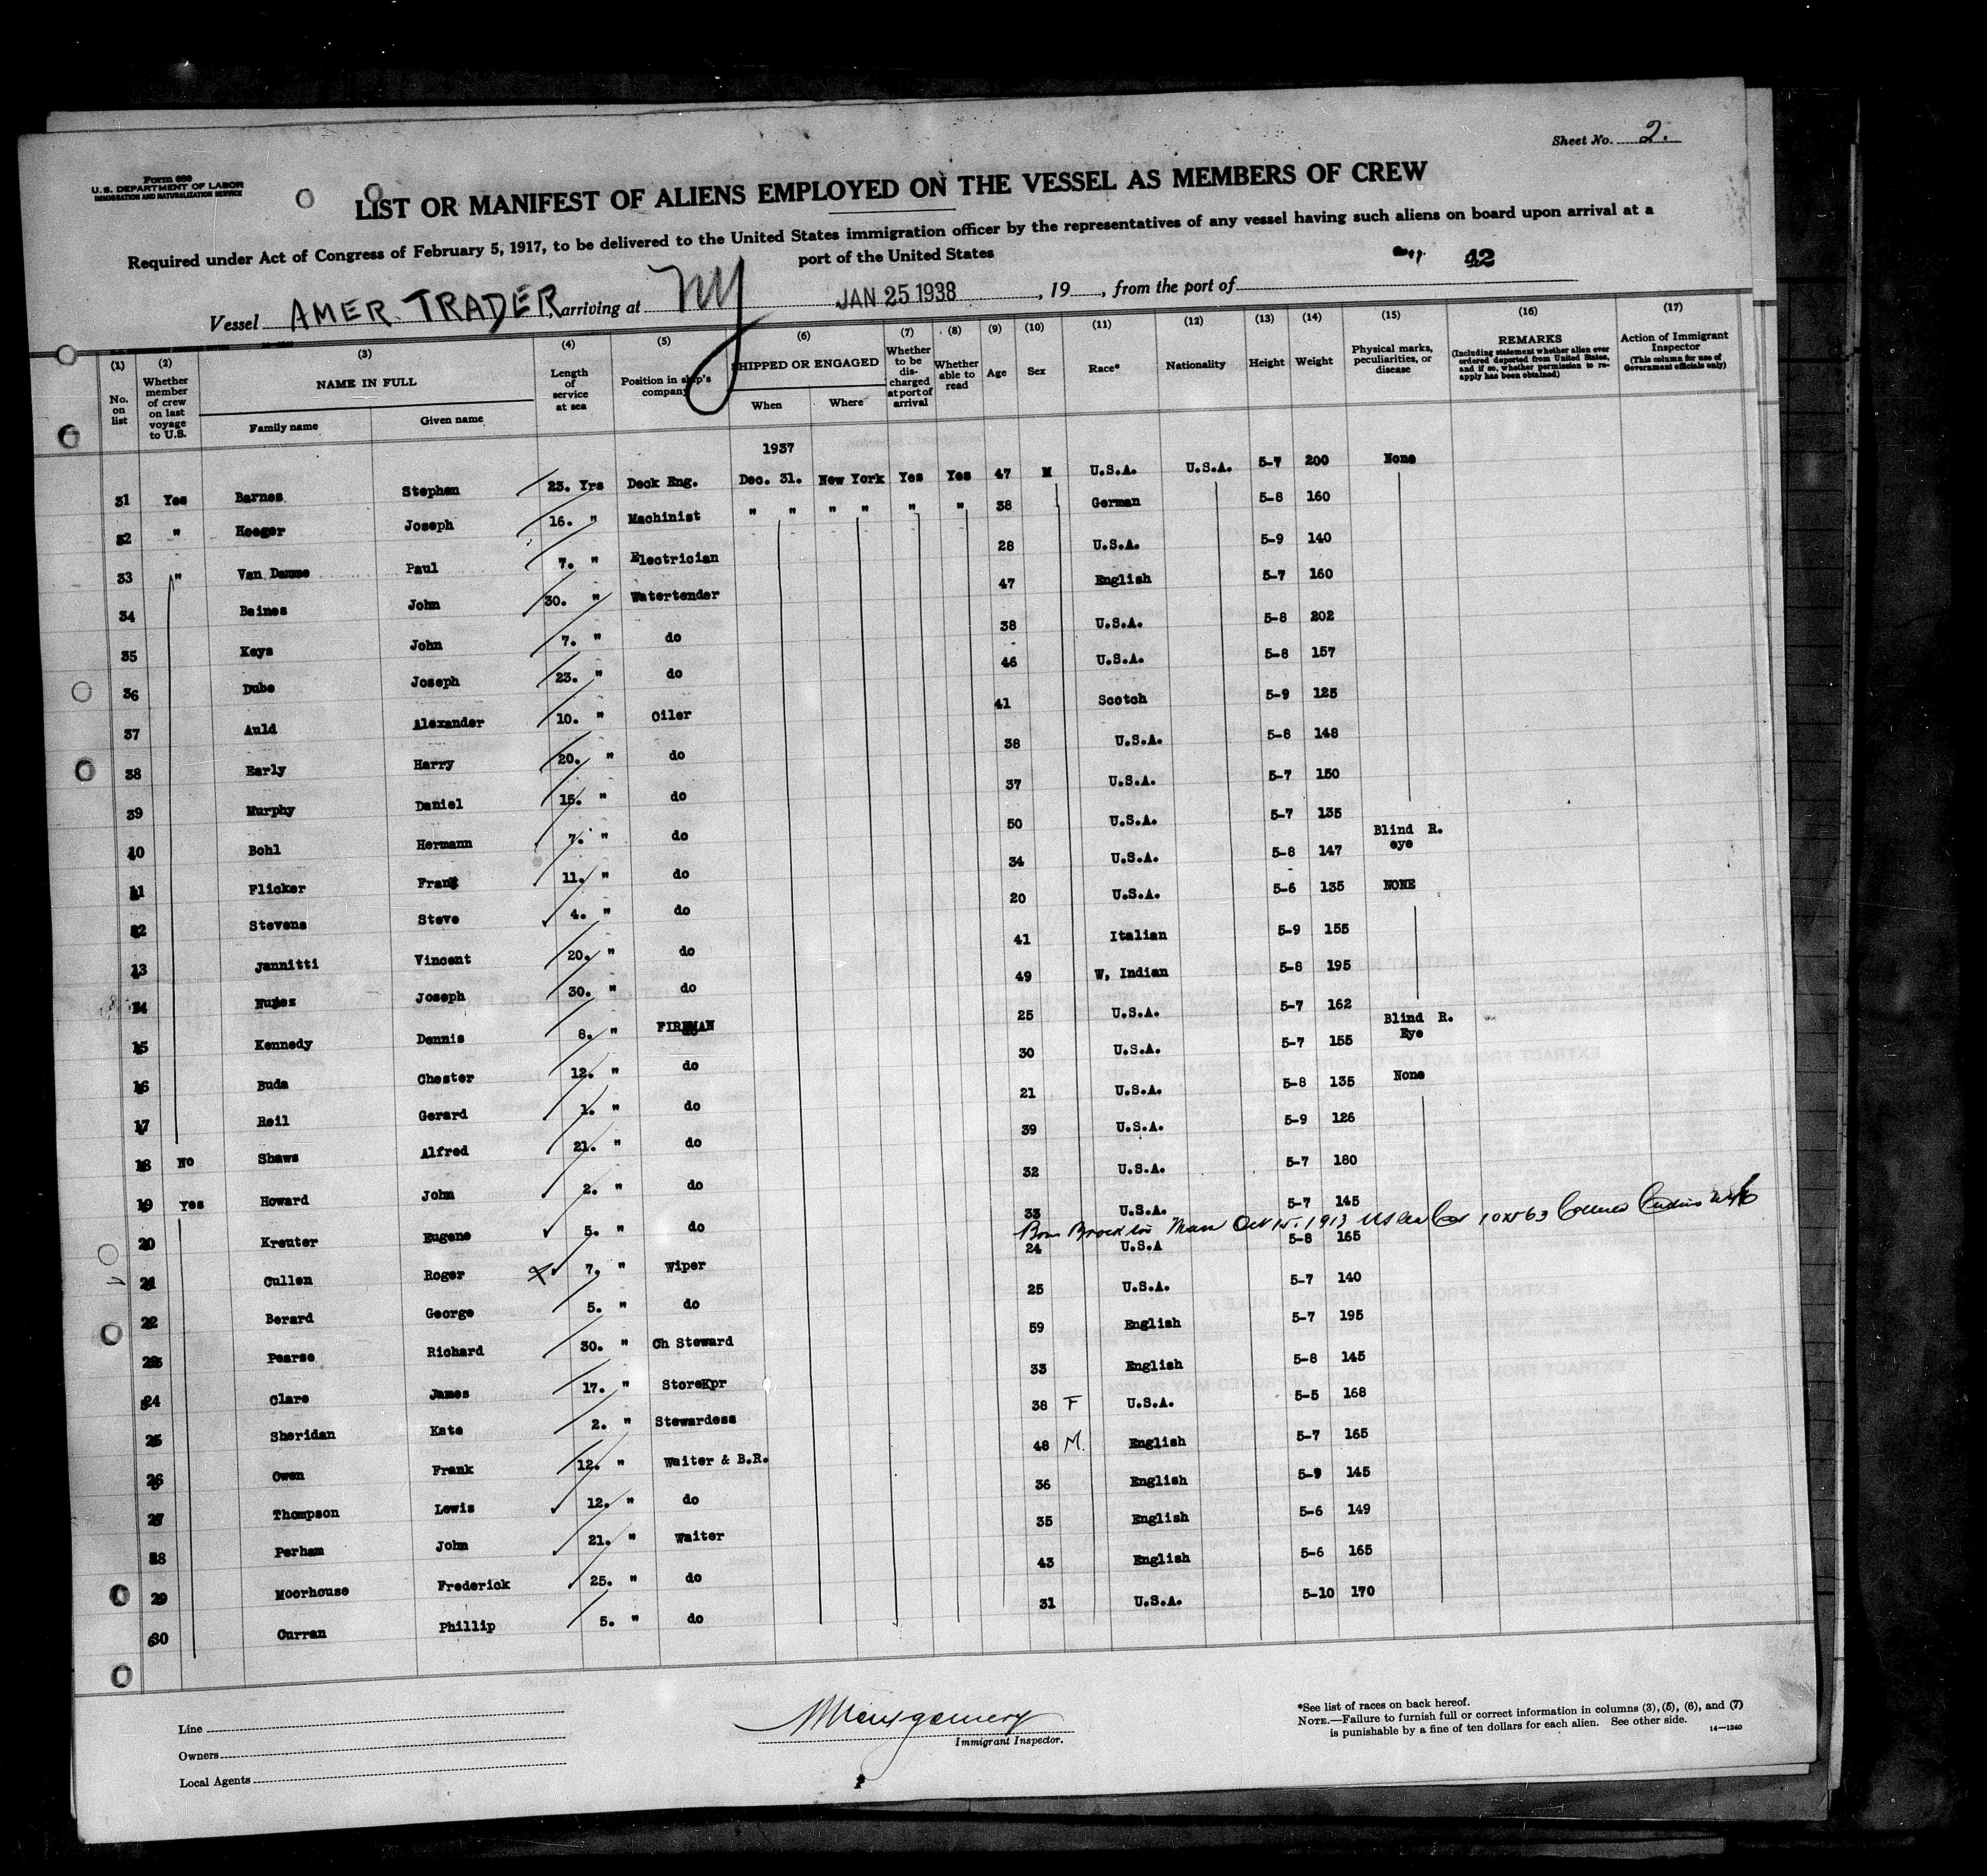 Sheet No. 2.
Form 680
U.S. DEPARTMENT OF LABOR
IMMIGRATION AND NATURALIZATION SERVICE
LIST OR MANIFEST OF ALIENS EMPLOYED ON THE VESSEL AS MEMBERS OF CREW
Required under Act of Congress of February 5, 1917, to be delivered to the United States immigration officer by the representatives of any vessel having such aliens on board upon arrival at a
port of the United States
42
Vessel AMER. TRADER, arriving at NY JAN 25 1938, 19, from the port of
(1) No. on list (2) Whether member of crew on last voyage to U.S. (3) NAME IN FULL Family name Given name (4) Length of service at sea (5) Position in ship's company (6) SHIPPED OR ENGAGED When Where (7) Whether to be discharged at port of arrival (8) Whether able to read (9) Age (10) Sex (11) Race* (12) Nationality (13) Height (14) Weight (15) Physical marks, peculiarities, or disease (16) REMARKS (Including statement whether alien ever ordered deported from United States, and if so, whether permission to re-apply has been obtained) (17) Action of Immigrant Inspector (This column for use of Government officials only)
1937
31 Yes Barnes Stephen 23. Yrs Deck Eng. Dec. 31. New York Yes Yes 47 M U.S.A. U.S.A. 5-7 200 None
32 " Hoeger Joseph 16. " Machinist " " " " " " 38 German 5-8 160
33 " Van Damme Paul 7. " Electrician 28 U.S.A. 5-9 140
34 Baines John 30. " Watertender 47 English 5-7 160
35 Keys John 7. " do 38 U.S.A. 5-8 202
36 Dube Joseph 23. " do 46 U.S.A. 5-8 157
37 Auld Alexander 10. " Oiler 41 Scotch 5-9 125
38 Early Harry 20. " do 38 U.S.A. 5-8 148
39 Murphy Daniel 15. " do 37 U.S.A. 5-7 150
40 Bohl Hermann 7. " do 50 U.S.A. 5-7 135 Blind R. eye
41 Flicker Frank 11. " do 34 U.S.A. 5-8 147
42 Stevens Steve 4. " do 20 U.S.A. 5-6 135 NONE
43 Jannitti Vincent 20. " do 41 Italian 5-9 155
44 Nunez Joseph 30. " do 49 W, Indian 5-8 195
45 Kennedy Dennis 8. " FIREMAN 25 U.S.A. 5-7 162 Blind R. Eye
46 Buda Chester 12. " do 30 U.S.A. 5-7 155
47 Reil Gerard 1. " do 21 U.S.A. 5-8 135 None
48 No Shaws Alfred 21. " do 39 U.S.A. 5-9 126
49 Yes Howard John 2. " do 32 U.S.A. 5-7 180
20 Kreuter Eugene 5. " do 33 U.S.A. 5-7 145
Born Brockton Mass Oct 15. 1913
21 Cullen Roger 7. " Wiper 24 U.S.A 5-8 165
22 Berard George 5. " do 25 U.S.A. 5-7 140
23 Pearse Richard 30. " Ch Steward 59 English 5-7 195
24 Clare James 17. " StoreKpr 33 English 5-8 145
25 Sheridan Kate 2. " Stewardess 38 F U.S.A. 5-5 168
26 Owen Frank 12. " Waiter & B.R. 48 M. English 5-7 165
27 Thompson Lewis 12. " do 36 English 5-9 145
28 Perham John 21. " Waiter 35 English 5-6 149
29 Moorhouse Frederick 25. " do 43 English 5-6 165
60 Curran Phillip 5. " do 31 U.S.A. 5-10 170
Line
Owners
Local Agents
Montgomery
Immigrant Inspector.
*See list of races on back hereof.
NOTE.—Failure to furnish full or correct information in columns (3), (5), (6), and (7)
is punishable by a fine of ten dollars for each alien. See other side. 14—1240